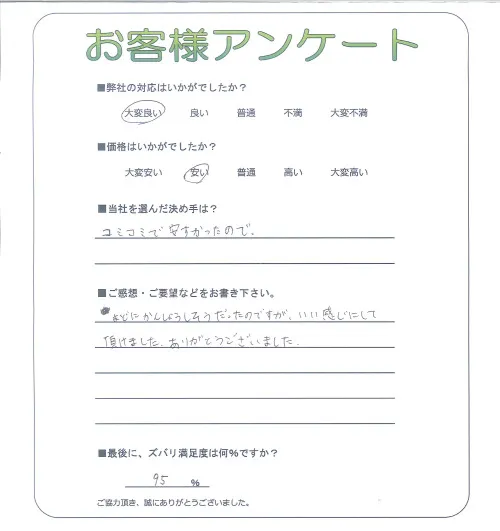 お客様アンケート
■弊社の対応はいかがでしたか？
大変良い 良い 普通 不満 大変不満
■価格はいかがでしたか？
大変安い 安い 普通 高い 大変高い
■当社を選んだ決め手は？
コミコミで安すかったので。
■ご感想・ご要望などをお書き下さい。
にかんしょうしそうだったのですが、いい感じにして
頂けました。ありがとうございました。
■最後に、ズバリ満足度は何％ですか？
95 ％
ご協力頂き、誠にありがとうございました。